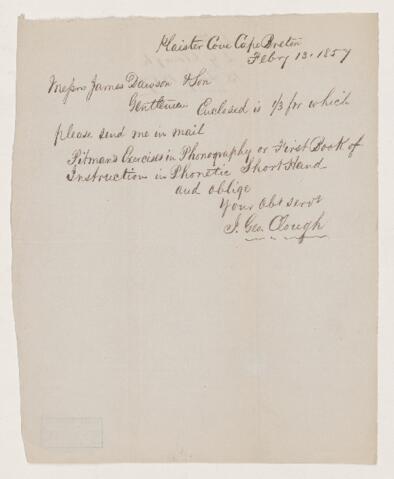 Plaister Cove Cape Breton
Febry 13. 1857
Messrs James Dawson & Son
Gentlemen Enclosed is 1/3 for which
please send me in mail
Pitman's Exercises in Phonography or First Book of
Instruction in Phonetic Short Hand
and oblige
Your Obt servt
J. Geo. Clough